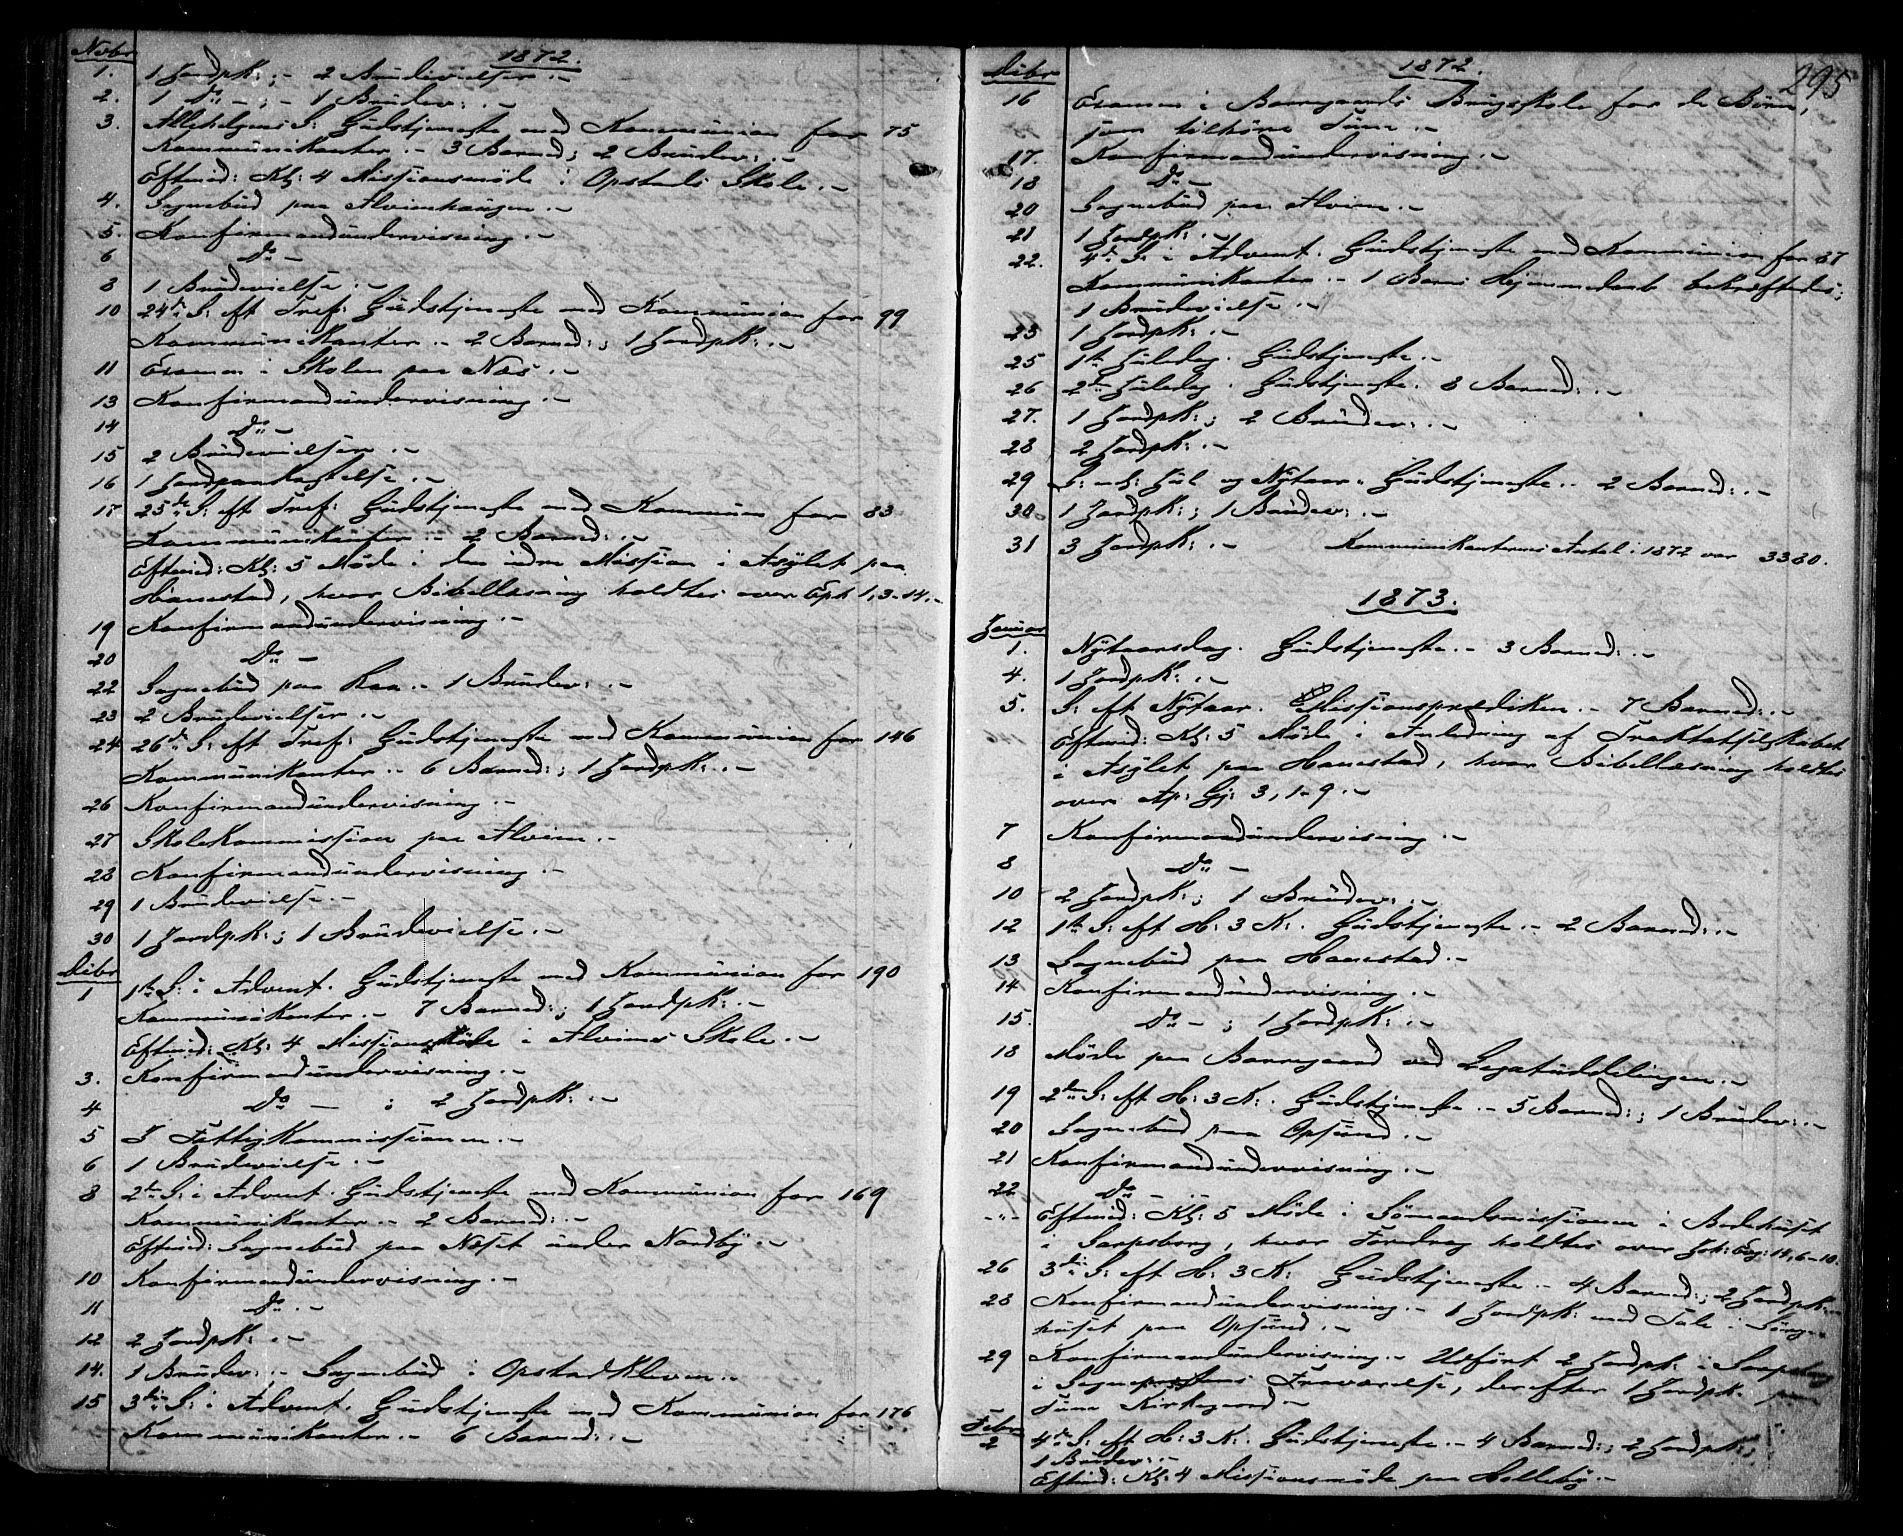 Nvbr 1872.
1. 1 Jordpk: ;- 2 Brudevielser.-
2. 1 Do -;- 1 Brudev:.-
3. Allehelgens S: Gudstjeneste med Kommunion for 75
Kommunikanter.- 3 Barned:; 2 Brudev:.-
Eftmid: Kl: 4 Missionsmöde i Opstads Skole.-
4. Sognebud paa Alvimhaugen.-
5. Konfirmandundervisning.-
6 Do -
8 1 Brudevielse.-
10 24de S: eft Tref: Gudstjeneste med Kommunion for 99
Kommunikanter.- 2 Barned:; 1 Jordpk:.-
11 Examen i Skolen paa Næs.-
13 Konfirmandundervisning.-
14 Do -
15 2 Brudevielser.-
16 1 Jordpaakastelse.-
17 25de S: eft Tref: Gudstjeneste med Kommunion for 83
Kommunikanter.- 2 Barned:.-
Eftmid: Kl: 5 Möde i den indre Mission i Asylet paa
Hanestad, hvor Bibellæsning holdtes over Eph 1,3-14.-
19 Konfirmandundervisning.-
20 Do -
22 Sognebud paa Raa.- 1 Brudev:.-
23 2 Brudevielser.-
24 26de S: eft Tref: Gudstjeneste med Kommunion for 146
Kommunikanter.- 6 Barned:; 1 Jordpk:.-
26 Konfirmandundervisning.-
27 Skolekommission paa Alvim.-
28 Konfirmandundervisning.-
29 1 Brudevielse.-
30 1 Jordpk:; 1 Brudevielse.-
Dcbr
1 1ste S: i Advent. Gudstjeneste med Kommunion for 190
Kommunikanter.- 7 Barned:; 1 Jordpk:.-
Eftmid: Kl: 4 Missionsmöde i Alvims Skole.-
3. Konfirmandundervisning.-
4 Do - ; 2 Jordpk:.-
5 I Fattigkommissionen.-
6 1 Brudevielse.-
8 2den S: i Advent. Gudstjeneste med Kommunion for 169
Kommunikanter.- 2 Barned:.-
Eftmid: Sognebud paa Næset under Nordby.-
10 Konfirmandundervisning.-
11 Do.-
12 2 Jordpk:.-
14. 1 Brudev:.- Sognebud i Opstadkleven.-
15 3die S: i Advent. Gudstjeneste med Kommunion for 176
Kommunikanter.- 6 Barned:.-
295
Dcbr 1872.
16 Examen i Borregaards Brugsskole for de Börn,
som tilhöre Tune.-
17. Konfirmandundervisning.-
18 Do -
20 Sognebud paa Alvim.-
21 1 Jordpk:.-
22. 4de S: i Advent. Gudstjeneste med Kommunion for 87
Kommunikanter.- 1 Barns Hjemmedaab bekræftedes;
1 Brudevielse.-
23 1 Jordpk:.-
25 1ste Juledag. Gudstjeneste.-
26 2den Juledag. Gudstjeneste. 8 Barned:.-
27. 1 Jordpk:; 2 Brudev:.-
28 2 Jordpk:.-
29 S: ml: Jul og Nytaar. Gudstjeneste.- 2 Barned:.-
30 1 Jordpk:; 1 Brudev:.-
31 3 Jordpk:.- Kommunikanternes Antal i 1872 var 3380.
1873.
Januar
1. Nytaarsdag. Gudstjeneste.- 3 Barned:.-
4. 1 Jordpk:.-
5. S: eft Nytaar. Missionsprædiken.- 7 Barned:.-
Eftmid: Kl: 5 Möde i Anledning af Traktatselskabet
i Asylet paa Hanestad, hvor Bibellæsning holdtes
over Ap: Gj: 3, 1-9.-
7 Konfirmandundervisning.-
8 Do -
10 2 Jordpk:; 1 Brudev:.-
12 1ste S: eft H: 3 K:. Gudstjeneste.- 2 Barned:.-
13 Sognebud paa Hanestad.-
14 Konfirmandundervisning.-
15. Do -; 1 Jordpk:.-
18 Möde paa Borregaard ved Legatuddelingen.-
19 2den S: eft H: 3 K:. Gudstjeneste.- 5 Barned:; 1 Brudev:.-
20 Sognebud paa Opsund.-
21 Konfirmandundervisning.-
22 Do -
-"- Eftmid: Kl: 5 Möde i Sömandsmissionen i Bedehuset
i Sarpsborg, hvor Foredrag holdtes over Joh: Evg: 14, 6-10.
26 3die S: eft H: 3 K: Gudstjeneste.- 4 Barned:; 2 Jordpk:
28 Konfirmandundervisning.- 1 Jordpk: med Tale i Sörge-
huset paa Opsund.-
29 Konfirmandundervisning.- Udfört 2 Jordpk: i Sarpsborg
i Sognepræstens Fraværelse, derefter 1 Jordpk. paa
Tune Kirkegaard.-
Febr
2 4de S: eft H: 3 K:. Gudstjeneste.- 4 Barned:; 2 Jordpk:;
1 Brudev:.-
Eftmid: Kl: 4 Missionsmöde paa Holleby.-